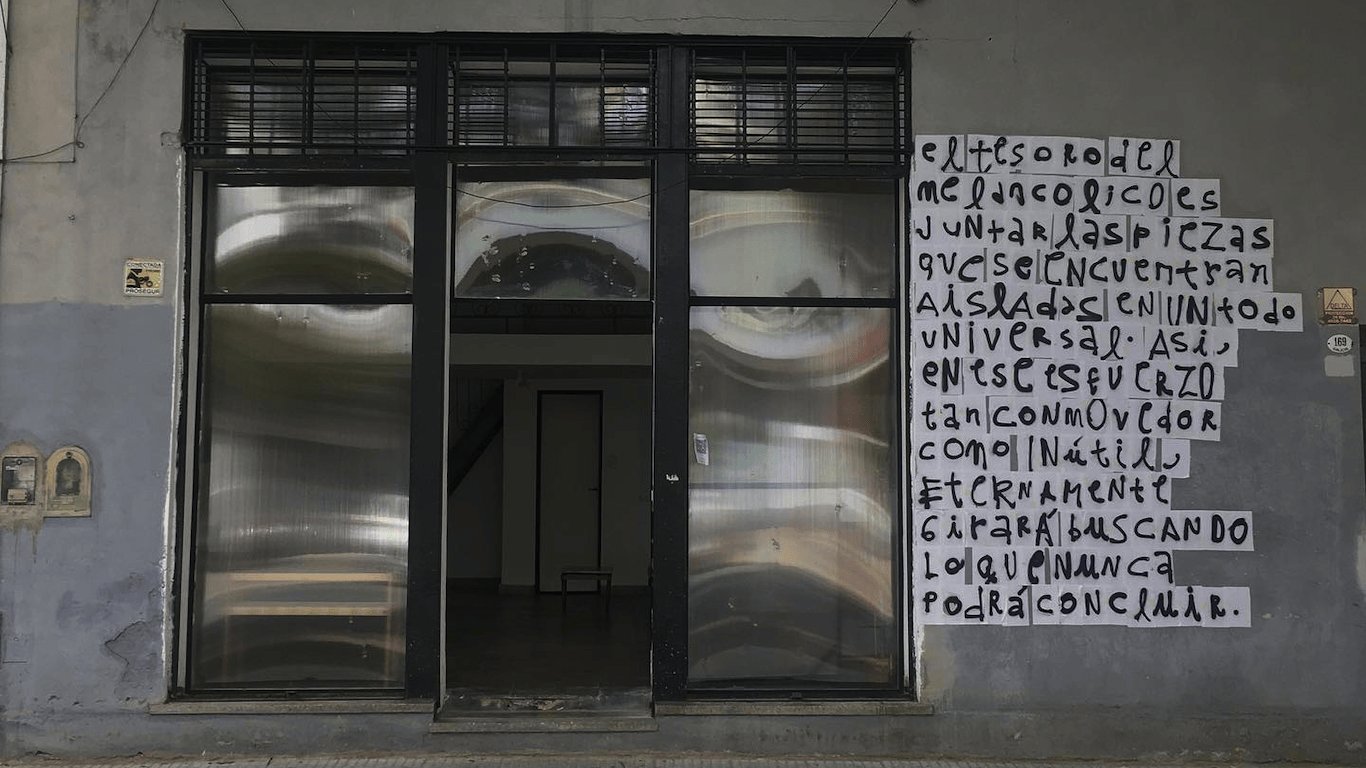 el tesoro del
melancolico es
JuNtar las piezas
que se ENcuentran
Aisladas EN UN todo
uNiversal. Asi,
eN ese esfuERZO
tan conmOvedoR
como INútil,
EteRNAMeNte
GiraRÁ buSCANDO
Lo que NuNca
PodRá coNcluiR.
CONECTADA
PROSEGUR
DELTA
169